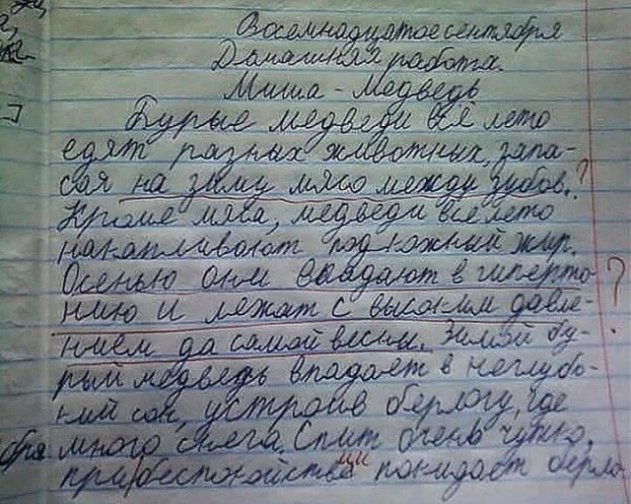 Восемнадцатое сентября
Домашняя работа.
Миша - Медведь
Бурые медведи всё лето
едят разных животных, запа-
сая на зиму мясо между зубов. ?
Кроме мяса, медведи всё лето
накапливают подкожный жир.
Осенью они впадают в гиперто-
нию и лежат с высоким давле- ?
нием да самой весны. Зимой бу-
рый медведь впадает в неглубо-
кий сон, устроив берлогу, где
бря много снега. Спит очень чутко,
при беспокойстве покидает берло